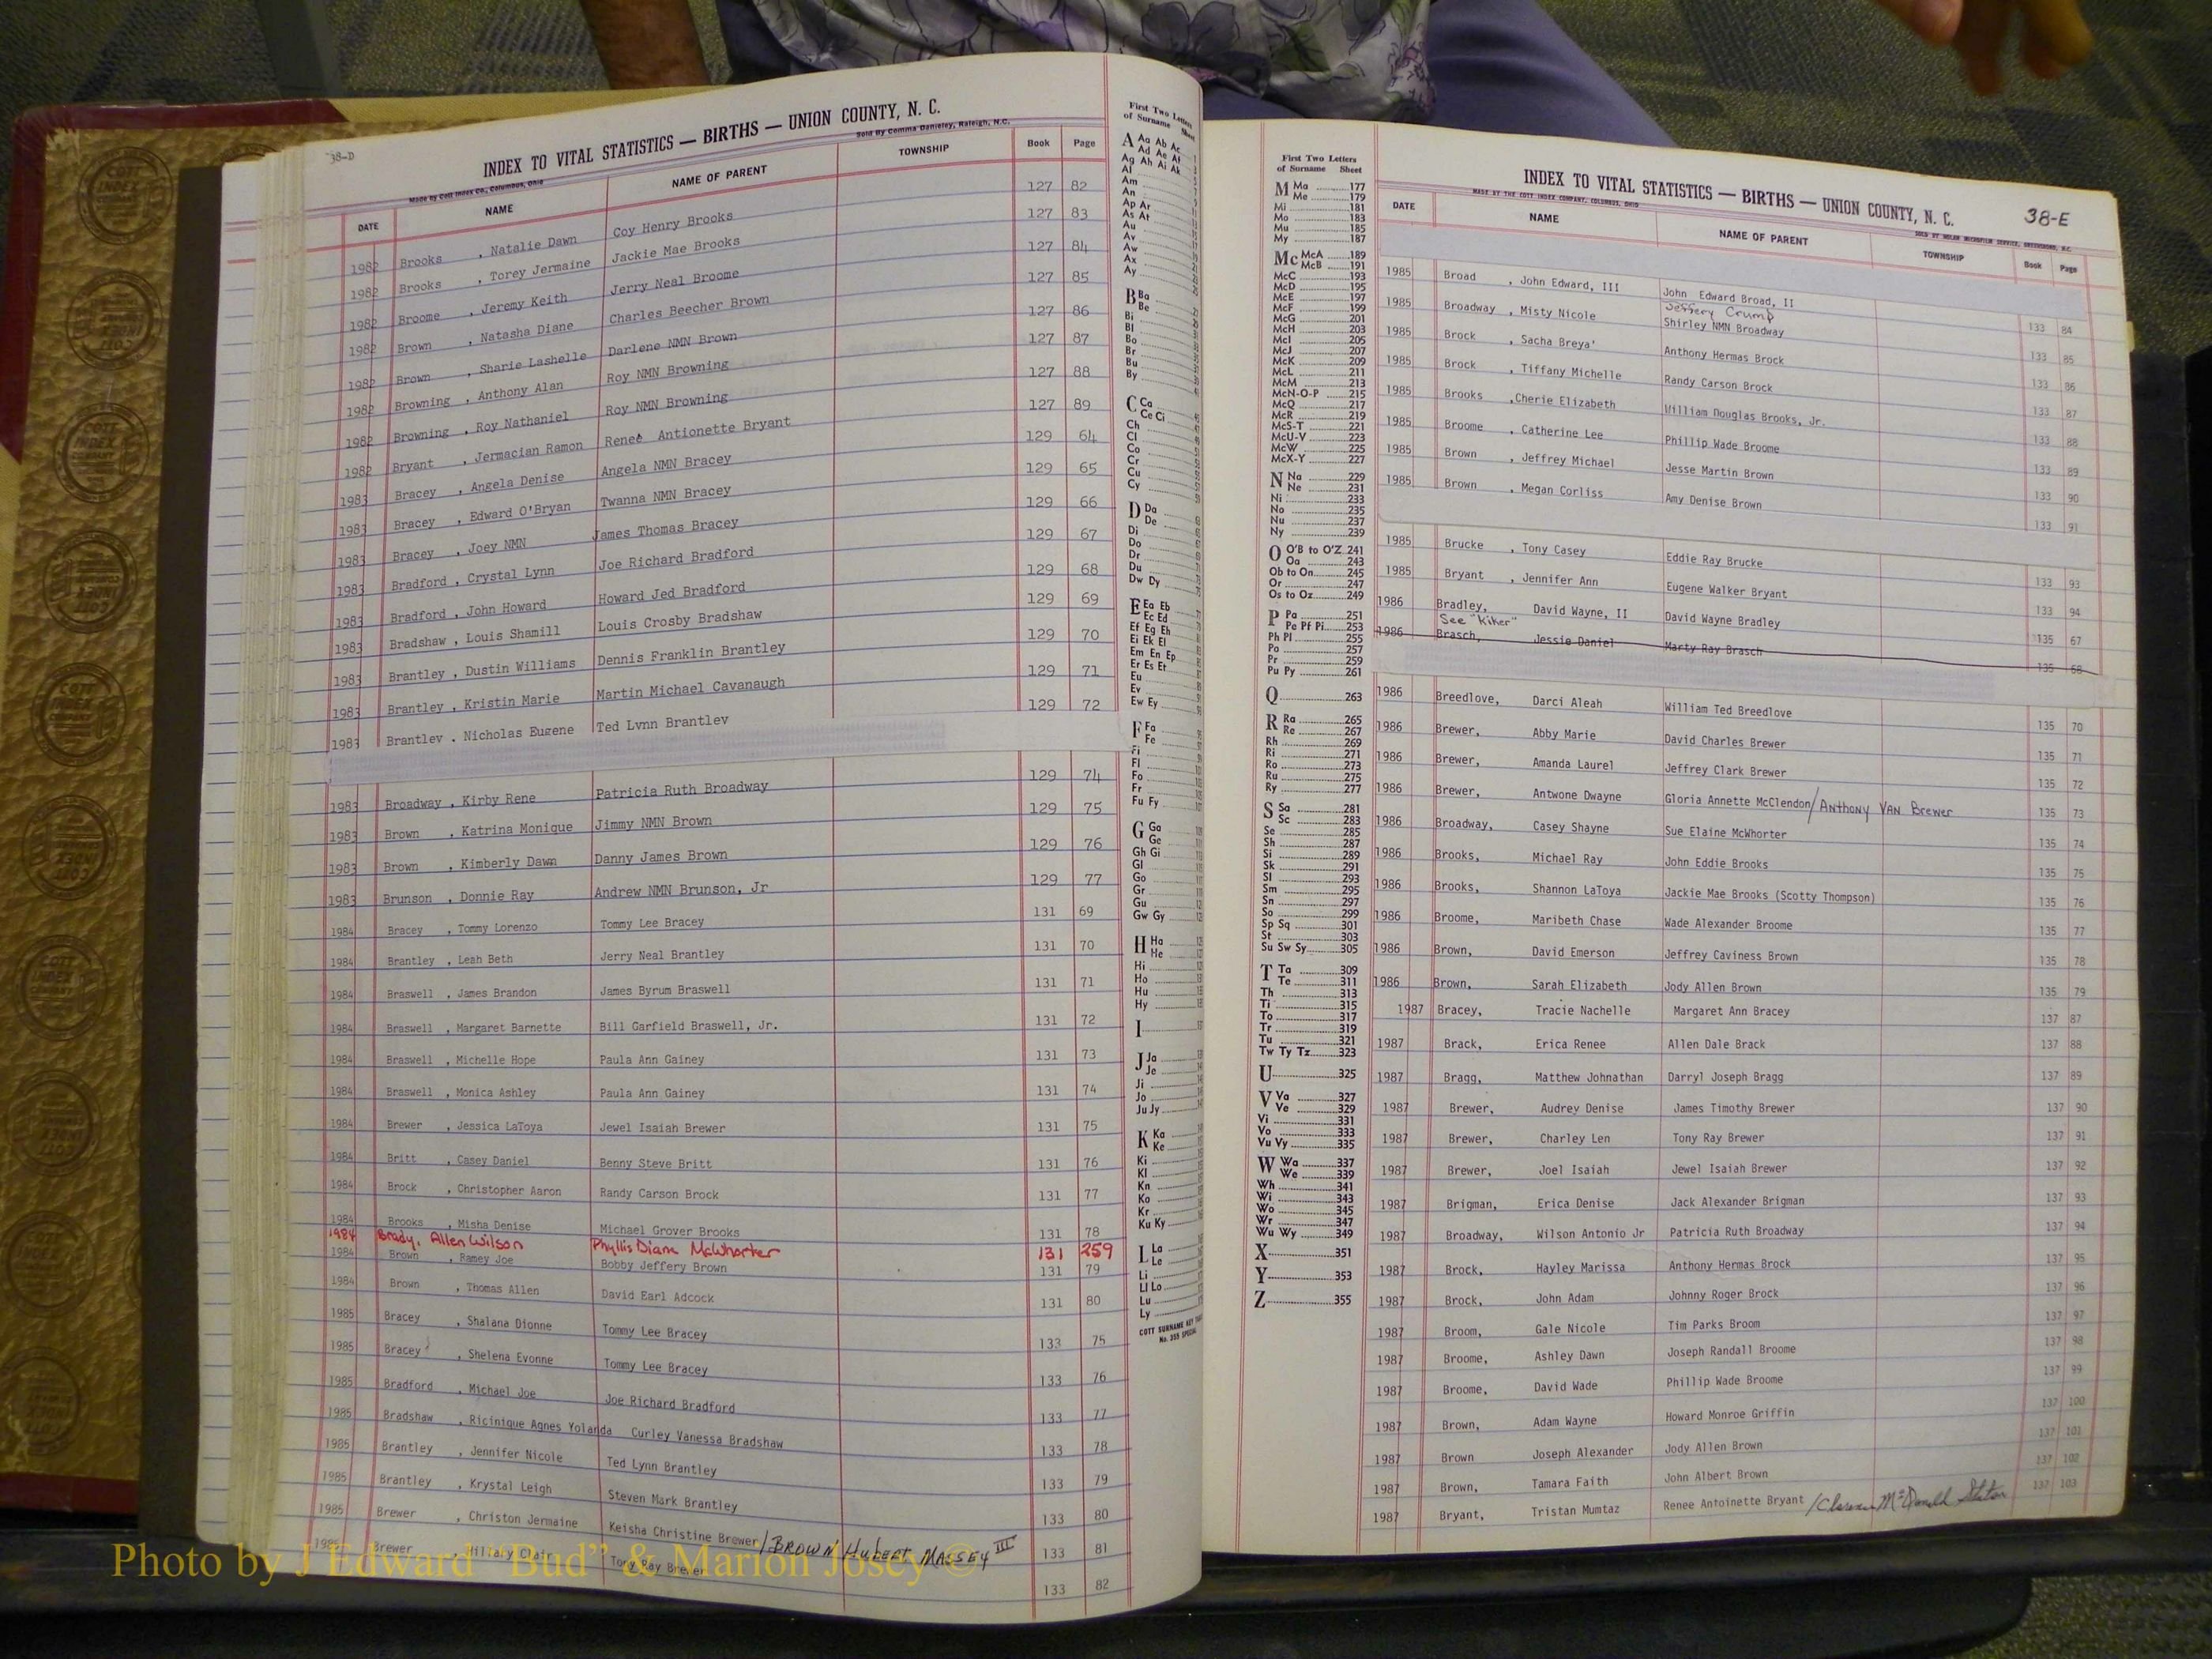 38-D
INDEX TO VITAL STATISTICS — BIRTHS — UNION COUNTY, N. C.
Made by Cott Index Co., Columbus, Ohio
Sold By Comma Danieley, Raleigh, N.C.
DATE NAME NAME OF PARENT TOWNSHIP Book Page
1982 Brooks , Natalie Dawn Coy Henry Brooks 127 82
1982 Brooks , Torey Jermaine Jackie Mae Brooks 127 83
1982 Broome , Jeremy Keith Jerry Neal Broome 127 84
1982 Brown , Natasha Diane Charles Beecher Brown 127 85
1982 Brown , Sharie Lashelle Darlene NMN Brown 127 86
1982 Browning , Anthony Alan Roy NMN Browning 127 87
1982 Browning , Roy Nathaniel Roy NMN Browning 127 88
1982 Bryant , Jermacian Ramon Renee Antionette Bryant 127 89
1983 Bracey , Angela Denise Angela NMN Bracey 129 64
1983 Bracey , Edward O'Bryan Twanna NMN Bracey 129 65
1983 Bracey , Joey NMN James Thomas Bracey 129 66
1983 Bradford , Crystal Lynn Joe Richard Bradford 129 67
1983 Bradford , John Howard Howard Jed Bradford 129 68
1983 Bradshaw , Louis Shamill Louis Crosby Bradshaw 129 69
1983 Brantley , Dustin Williams Dennis Franklin Brantley 129 70
1983 Brantley , Kristin Marie Martin Michael Cavanaugh 129 71
1983 Brantley . Nicholas Eugene Ted Lynn Brantley 129 72
1983 Broadway , Kirby Rene Patricia Ruth Broadway 129 74
1983 Brown , Katrina Monique Jimmy NMN Brown 129 75
1983 Brown , Kimberly Dawn Danny James Brown 129 76
1983 Brunson , Donnie Ray Andrew NMN Brunson, Jr 129 77
1984 Bracey , Tommy Lorenzo Tommy Lee Bracey 131 69
1984 Brantley , Leah Beth Jerry Neal Brantley 131 70
1984 Braswell , James Brandon James Byrum Braswell 131 71
1984 Braswell , Margaret Barnette Bill Garfield Braswell, Jr. 131 72
1984 Braswell , Michelle Hope Paula Ann Gainey 131 73
1984 Braswell , Monica Ashley Paula Ann Gainey 131 74
1984 Brewer , Jessica LaToya Jewel Isaiah Brewer 131 75
1984 Britt , Casey Daniel Benny Steve Britt 131 76
1984 Brock , Christopher Aaron Randy Carson Brock 131 77
1984 Brooks , Misha Denise Michael Grover Brooks 131 78
1984 Brady, Allen Wilson Phyllis Diane McWhorter 131 259
1984 Brown , Ramey Joe Bobby Jeffery Brown 131 79
1984 Brown , Thomas Allen David Earl Adcock 131 80
1985 Bracey , Shalana Dionne Tommy Lee Bracey 133 75
1985 Bracey , Shelena Evonne Tommy Lee Bracey 133 76
1985 Bradford , Michael Joe Joe Richard Bradford 133 77
1985 Bradshaw , Ricinique Agnes Yolanda Curley Vanessa Bradshaw 133 78
1985 Brantley , Jennifer Nicole Ted Lynn Brantley 133 79
1985 Brantley , Krystal Leigh Steven Mark Brantley 133 80
1985 Brewer , Christon Jermaine Keisha Christine Brewer/BROWN Hubert MASSEY III 133 81
1985 Brewer , Hillary Clair Tony Ray Brewer 133 82
First Two Letters
of Surname Sheet
A Aa Ab Ac
Ad Ae Af
Ag Ah Ai Ak
Al
Am
An
Ap Ar
As At
Au
Av
Aw
Ax
Ay
B Ba
Be
Bi
Bl
Bo
Br
Bu
By
C Ca
Ce Ci
Ch
Cl
Co
Cr
Cu
Cy
D Da
De
Di
Do
Dr
Du
Dw Dy
E Ea Eb
Ec Ed
Ef Eg Eh
Ei Ek El
Em En Ep
Er Es Et
Eu
Ev
Ew Ey
F Fa
Fe
Fi
Fl
Fo
Fr
Fu Fy
G Ga
Ge
Gh Gi
Gl
Go
Gr
Gu
Gw Gy
H Ha
He
Hi
Ho
Hu
Hy
I
J Ja
Je
Ji
Jo
Ju Jy
K Ka
Ke
Ki
Kl
Kn
Ko
Kr
Ku Ky
L La
Le
Li
Ll Lo
Lu
Ly
COTT SURNAME KEY
No. 355 SPECIAL
First Two Letters
of Surname Sheet
M Ma 177
Me 179
Mi 181
Mo 183
Mu 185
My 187
Mc McA 189
McB 191
McC 193
McD 195
McE 197
McF 199
McG 201
McH 203
McI 205
McJ 207
McK 209
McL 211
McM 213
McN-O-P 215
McQ 217
McR 219
McS-T 221
McU-V 223
McW 225
McX-Y 227
N Na 229
Ne 231
Ni 233
No 235
Nu 237
Ny 239
O O'B to O'Z 241
Oa 243
Ob to On 245
Or 247
Os to Oz 249
P Pa 251
Pe Pf Pi 253
Ph Pl 255
Po 257
Pr 259
Pu Py 261
Q 263
R Ra 265
Re 267
Rh 269
Ri 271
Ro 273
Ru 275
Ry 277
S Sa 281
Sc 283
Se 285
Sh 287
Si 289
Sk 291
Sl 293
Sm 295
Sn 297
So 299
Sp Sq 301
St 303
Su Sw Sy 305
T Ta 309
Te 311
Th 313
Ti 315
To 317
Tr 319
Tu 321
Tw Ty Tz 323
U 325
V Va 327
Ve 329
Vi 331
Vo 333
Vu Vy 335
W Wa 337
We 339
Wh 341
Wi 343
Wo 345
Wr 347
Wu Wy 349
X 351
Y 353
Z 355
INDEX TO VITAL STATISTICS — BIRTHS — UNION COUNTY, N. C.
38-E
MADE BY THE COTT INDEX COMPANY, COLUMBUS, OHIO
SOLD BY MOLAN MICROFILM SERVICE, GREENSBORO, N.C.
DATE NAME NAME OF PARENT TOWNSHIP Book Page
1985 Broad , John Edward, III John Edward Broad, II 133 84
Jeffery Crump
1985 Broadway , Misty Nicole Shirley NMN Broadway 133 85
1985 Brock , Sacha Breya' Anthony Hermas Brock 133 86
1985 Brock , Tiffany Michelle Randy Carson Brock 133 87
1985 Brooks ,Cherie Elizabeth William Douglas Brooks, Jr. 133 88
1985 Broome , Catherine Lee Phillip Wade Broome 133 89
1985 Brown , Jeffrey Michael Jesse Martin Brown 133 90
1985 Brown , Megan Corliss Amy Denise Brown 133 91
1985 Brucke , Tony Casey Eddie Ray Brucke 133 93
1985 Bryant , Jennifer Ann Eugene Walker Bryant 133 94
1986 Bradley, David Wayne, II David Wayne Bradley 135 67
See "Kiker"
1986 Brasch, Jessie Daniel Marty Ray Brasch 135 68
1986 Breedlove, Darci Aleah William Ted Breedlove 135 70
1986 Brewer, Abby Marie David Charles Brewer 135 71
1986 Brewer, Amanda Laurel Jeffrey Clark Brewer 135 72
1986 Brewer, Antwone Dwayne Gloria Annette McClendon/ANTHONY VAN Brewer 135 73
1986 Broadway, Casey Shayne Sue Elaine McWhorter 135 74
1986 Brooks, Michael Ray John Eddie Brooks 135 75
1986 Brooks, Shannon LaToya Jackie Mae Brooks (Scotty Thompson) 135 76
1986 Broome, Maribeth Chase Wade Alexander Broome 135 77
1986 Brown, David Emerson Jeffrey Caviness Brown 135 78
1986 Brown, Sarah Elizabeth Jody Allen Brown 135 79
1987 Bracey, Tracie Nachelle Margaret Ann Bracey 137 87
1987 Brack, Erica Renee Allen Dale Brack 137 88
1987 Bragg, Matthew Johnathan Darryl Joseph Bragg 137 89
1987 Brewer, Audrey Denise James Timothy Brewer 137 90
1987 Brewer, Charley Len Tony Ray Brewer 137 91
1987 Brewer, Joel Isaiah Jewel Isaiah Brewer 137 92
1987 Brigman, Erica Denise Jack Alexander Brigman 137 93
1987 Broadway, Wilson Antonio Jr Patricia Ruth Broadway 137 94
1987 Brock, Hayley Marissa Anthony Hermas Brock 137 95
1987 Brock, John Adam Johnny Roger Brock 137 96
1987 Broom, Gale Nicole Tim Parks Broom 137 97
1987 Broome, Ashley Dawn Joseph Randall Broome 137 98
1987 Broome, David Wade Phillip Wade Broome 137 99
1987 Brown, Adam Wayne Howard Monroe Griffin 137 100
1987 Brown Joseph Alexander Jody Allen Brown 137 101
1987 Brown, Tamara Faith John Albert Brown 137 102
1987 Bryant, Tristan Mumtaz Renee Antoinette Bryant / McDonald 137 103
Photo by J Edward “Bud” & Marion Josey ©
COTT INDEX COMPANY